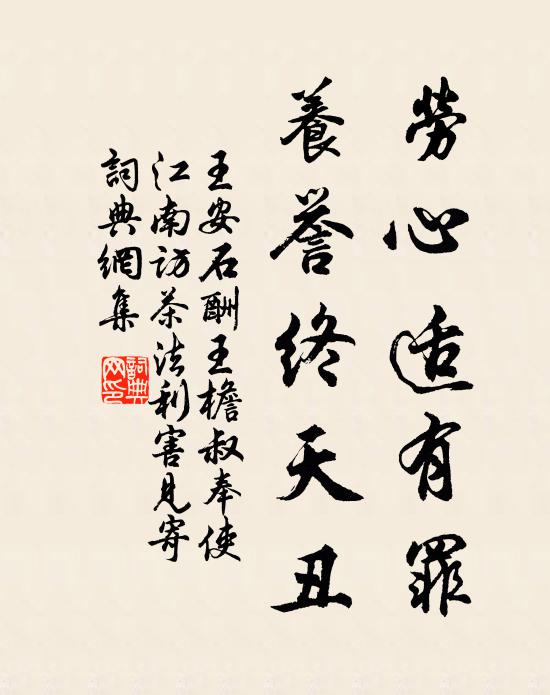 勞心适有罪
養誉終天丑
王安石酬王檐叔奉使
江南訪茶法利害見寄
詞典網集
詞典
网印